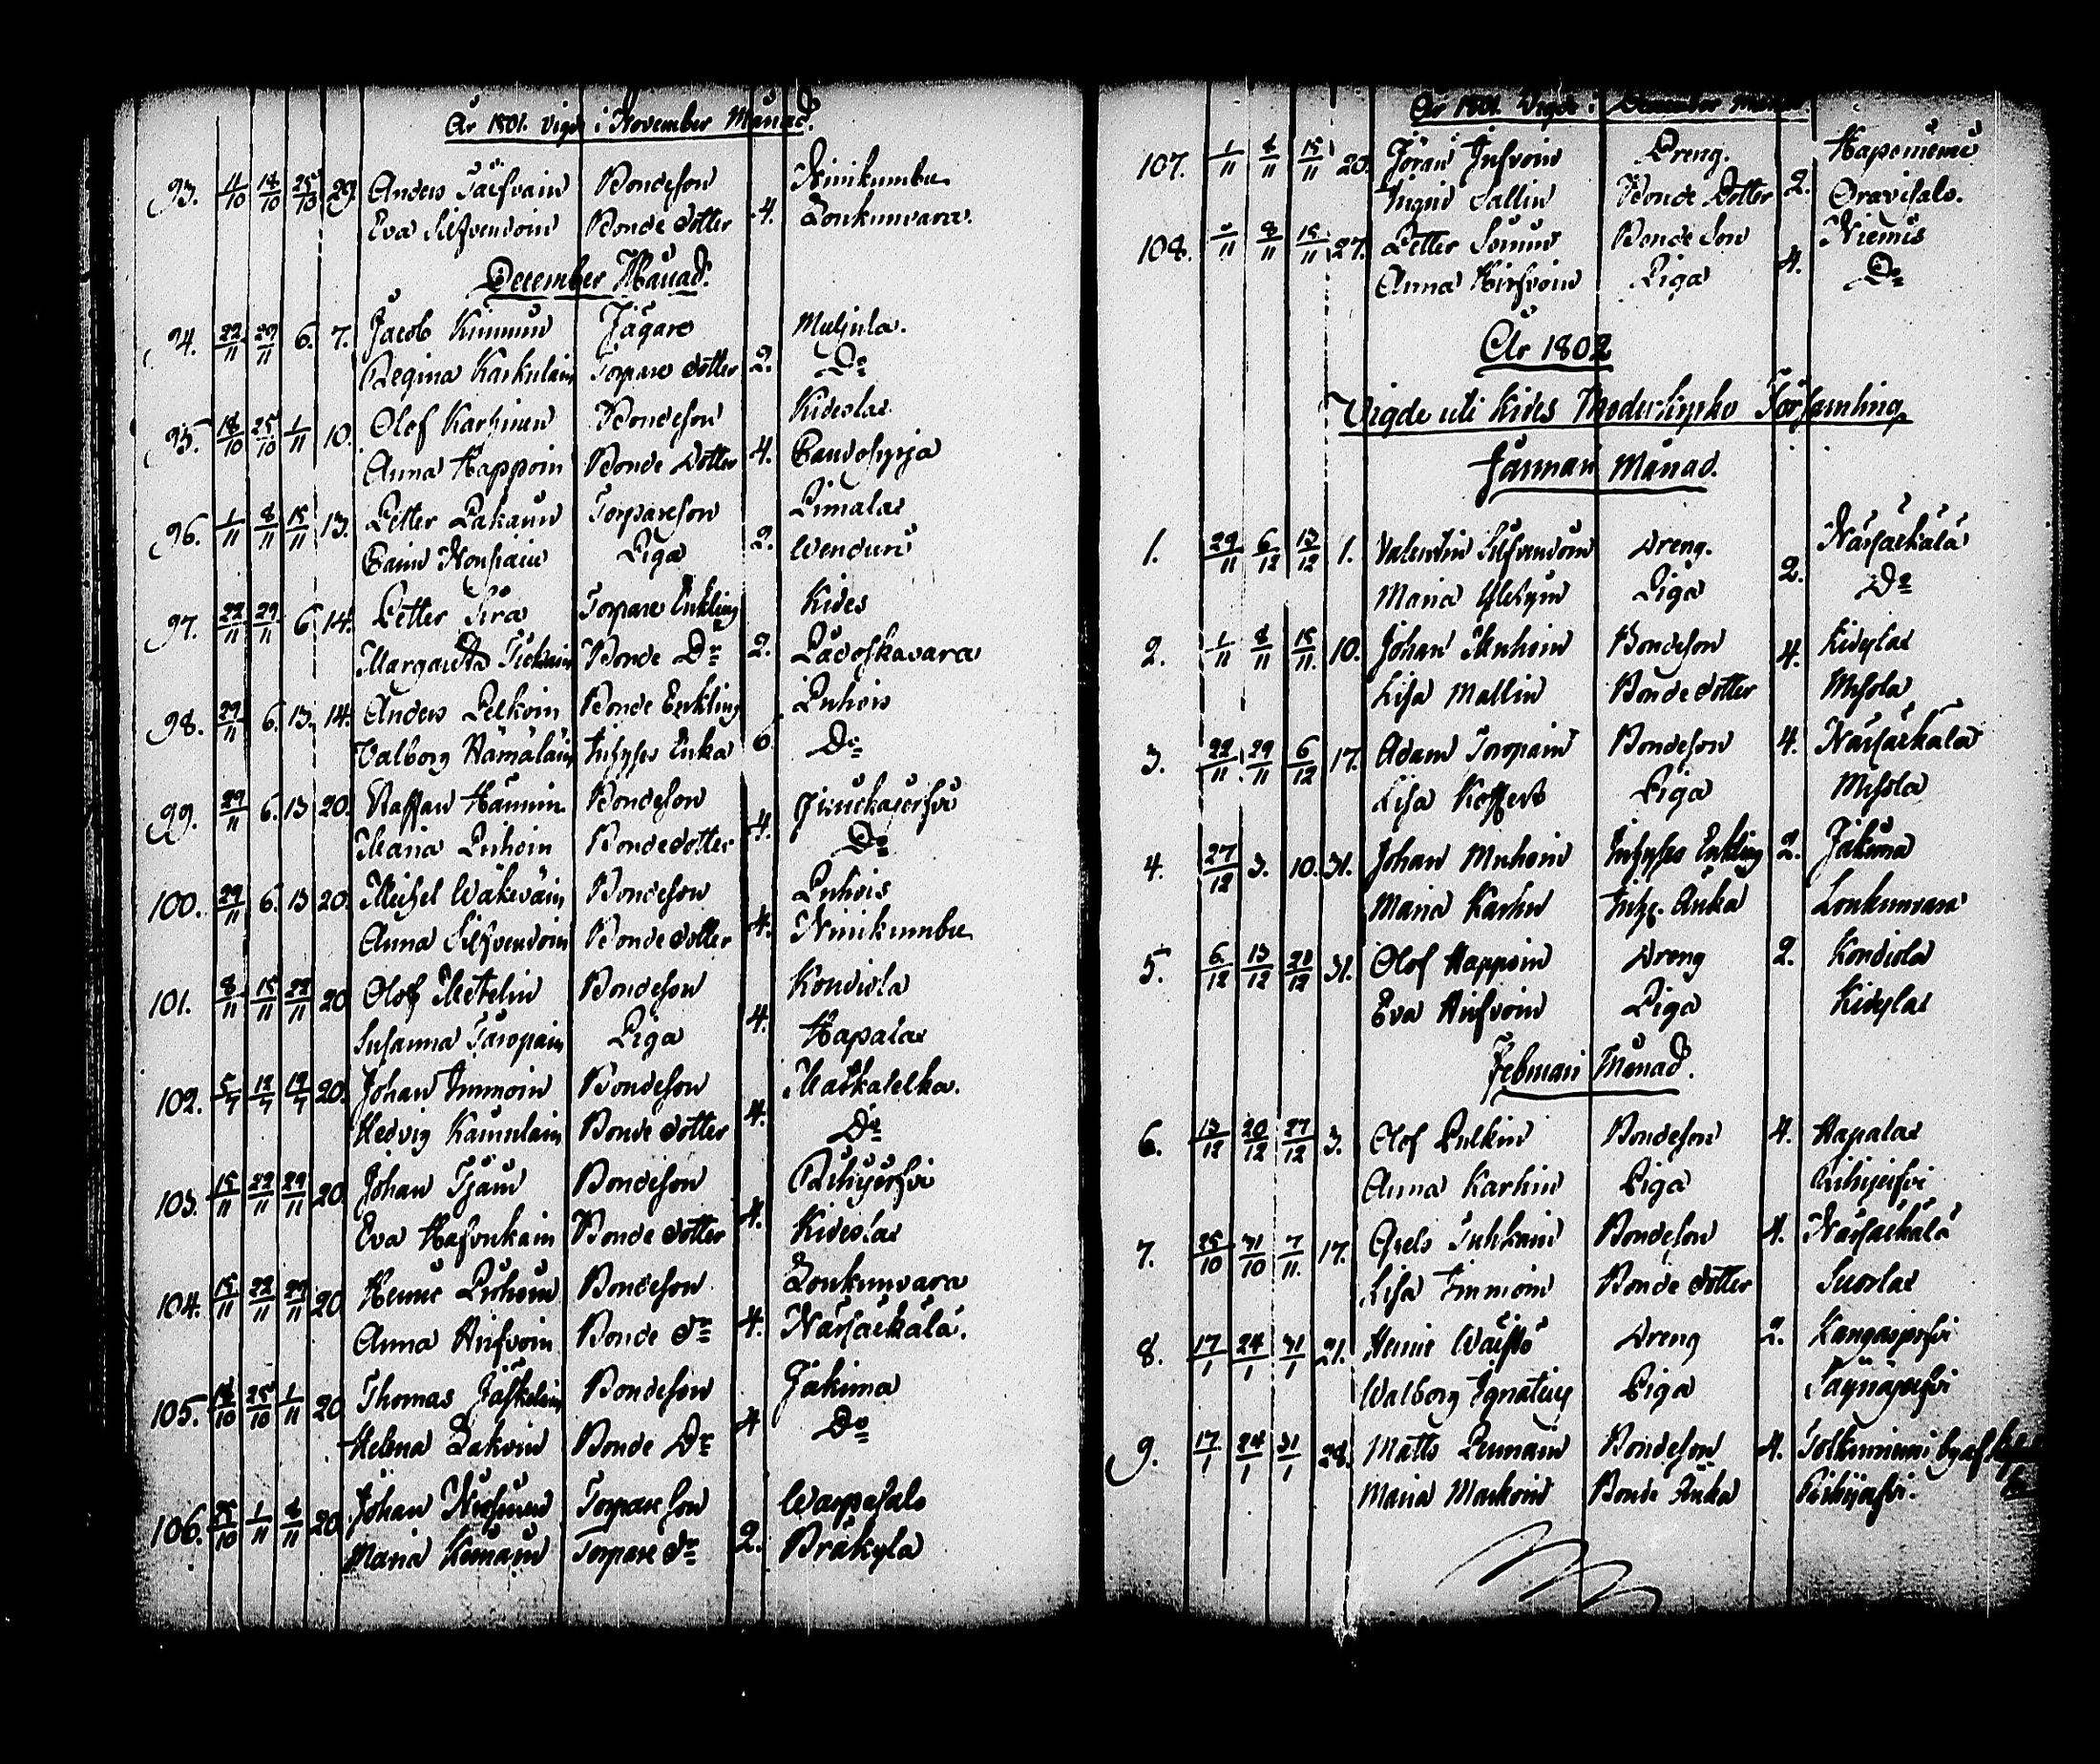 År 1801. Vigde i November Månad.
93. 11/10 18/10 25/10 29. Anders Tarfvain Bondeson 4. Niinikumbu
Eva Silfvendoin Bonde dotter Loukunvara.
December Månad.
94. 22/11 29/11 6. 7. Jacob Kinnuin Jägare 2. Muljula.
Regina Karkulain Torpare dotter Do
95. 18/10 25/10 1/11 10. Olof Karhinen Bondeson 4. Kideslax
Anna Happoin Bonde dotter
96. 1/11 8/11 15/11 13. Petter Pakain Torpareson 2. Pimalax
Piga
97. 22/11 29/11 6 14. Petter Sira Torpare Enkling 2. Kides
Margareta Bonde Dr
98. 29/11 6. 13. 14. Anders Pelkoin Bonde Enkling 6. Puhois
Valborg Hämäläin Inhyses Enka Do
99. 29/11 6. 13 20. Staffan Hännin Bondeson 4.
Maria Puhoin Bondedotter Do
100. 29/11 6. 13 20. Michel Wäkeväin Bondeson 4. Puhois
Anna Silfvendoin Bonde dotter Niinikumbu
101. 8/11 15/11 22/11 20 Olof Metelin Bondeson 4. Kondiola
Susanna Taropain Piga Hapalax
102. 5/7 12/7 19/7 20. Johan Immoin Bondeson 4. Matkaselka.
Hedvig Kainulain Bonde dotter Do
103. 15/11 22/11 29/11 20 Johan Tjain Bondeson 4.
Eva Hafvukain Bonde dotter Kideslax
104. 15/11 22/11 29/11 20 Henric Puhoin Bondeson 4. Loukunvara
Anna Hirfvoin Bonde dr Närsäkälä.
105. 18/10 25/10 1/11 20 Thomas Jäskeläin Bondeson 4 Jakima
Helena Pakoin Bonde Dr Do
106. 25/10 1/11 8/11 20 Johan Torpare Son 2. Warpasalo
Maria Torpare dr Bråkyla
År 1801. Vigde i December Månad
107. 1/11 8/11 15/11 20. Jöran Dreng. 2. Hapeniemi
Ingrid Sallin Bonde Dotter Oravisalo.
108. 1/11 8/11 15/11 27. Petter Bonde Son 4. Niemis
Anna Hirfvoin Piga Do
År 1802
Vigde uti Kides Moderkyrko Församling
Januari Månad.
1. 29/11 6/12 13/12 1. Valentin Silfvendoin Dreng. 2. Närsäkälä
Maria Piga Do
2. 1/11 8/11 15/11. 10. Johan Muhoin Bondeson 4. Kidylax
Lisa Mallin Bonde dotter Misola
3. 22/11 29/11 6/12 17. Adam Toropain Bondeson 4. Närsäkälä
Lisa Piga Misola
4. 27/12 3. 10. 31. Johan Muhoin Inhyses Enkling 2. Jakima
Maria Karhu Inhys. Änka Loukunvara
5. 6/12 13/12 20/12 31. Olof Happoin Dreng 2. Kondiola
Eva Hirfvoin Piga Kidylax
Februari Månad.
6. 13/12 20/12 27/12 3. Olof Pulkin Bondeson 4. Hapalax
Anna Karhin Piga
7. 25/10 31/10 7/11. 17. Grels Tuhkain Bondeson 4. Närsäkälä
Lisa Immoin Bonde dotter Suorlax
8. 17/1 24/1 31/1 21. Henric Dreng 2. Kangasjerfvi
Walborg Ignatius Piga
9. 17/1 24/1 31/1 28. Matts Bondeson 4. by af
Maria Markoin Bonde Änka